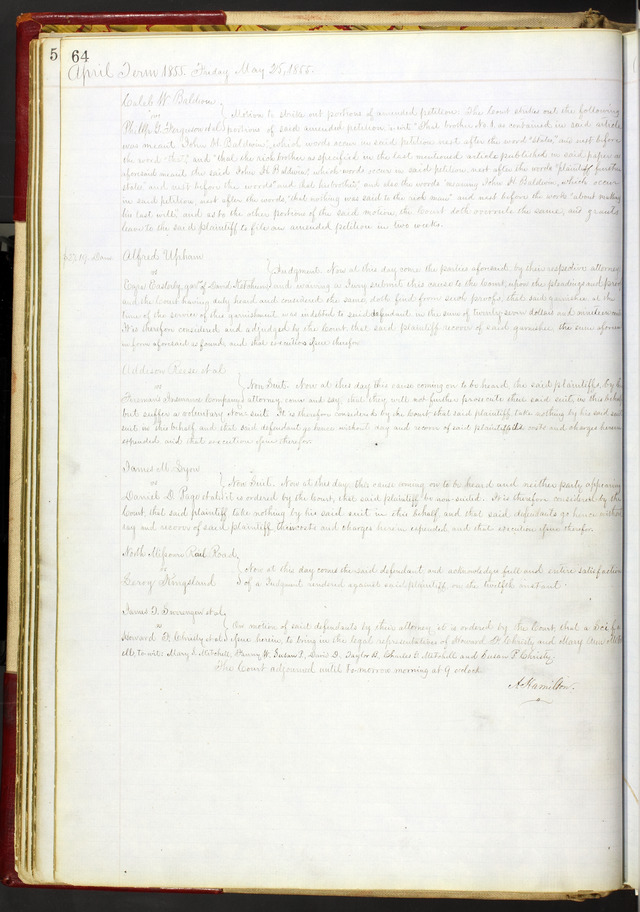 5 64
April Term 1855. Friday May 25, 1855.
Caleb W. Baldwin,
vs
Motion to strike out portions of amended petition. The Court strikes out the following
Ferguson et al portions of said amended petition, "That brother No 1 as contained in said article
was meant John H. Baldwin," which words occur in said petition next after the word "state," and next before
the word "the"; and "that the rich brother as specified in the last mentioned article published in said paper as
aforesaid meant the said John H. Baldwin," which words occur in said petition, next after the words "plaintiff further
states" and next before the words "and that his brother," and also the words "meaning John H. Baldwin, which occur
in said petition, next after the words, "that nothing was said to the rich man" and next before the words "about making
his last will: and as to the other portions of the said motion, the Court doth overrule the same; and grants
leave to the said plaintiff to file an amended petition in two weeks.
Alfred Upham
vs
Judgment. Now at this day come the parties aforesaid, by their respective attorneys
Easterby, of David Ketchum and waiving a Jury submit this cause to the Court, upon the pleadings and
and the Court having duly heard and considered the same, doth find from such proofs, that said garnishee at the
time of the service of the garnishment was indebted to said defendant, in the sum of twenty seven dollars and nineteen
It is therefore considered and adjudged by the Court, that said plaintiff recover of said garnishee, the sum
in form aforesaid so found, and that execution issue therefor.
Addison Reese et al
vs
Non Suit. Now at this day this cause coming on to be heard, the said plaintiffs, by
Firemens Insurance Company attorney come and say that they will not further prosecute their said suit in this behalf
but suffer a voluntary Non suit. It is therefore considered by the Court that said plaintiff take nothing by his said
suit in this behalf and that said defendant go hence without day and recover of said plaintiffs its costs and charges herein
expended and that execution issue therefor.
James M. Lyon
vs
Non Suit. Now at this day this cause coming on to be heard and neither party appearing
Daniel D. Page et al it is ordered by the Court, that said plaintiff be non-suited. It is therefore considered by the
Court, that said plaintiff take nothing by his said suit in this behalf and that said defendants go hence without
day and recover of said plaintiff, their costs and charges herein expended and that execution issue therefor.
North Missouri Rail Road,
vs
Now at this day comes the said defendant and acknowledges full and entire satisfaction
Leroy Kingsland of a Judgment rendered against said plaintiff on the twelfth instant.
James et al,
vs
On motion of said defendants by their attorney it is ordered by the Court, that a
Howard F. Christy et al issue herein, to bring in the legal representatives of Howard F. Christy and Mary Ann
to wit: Mary E. Mitchell, W. Susan D. Taylor Charles C. Mitchell and Susan P. Christy
The Court adjourned until to-morrow morning at 9 o'clock.
A. Hamilton.